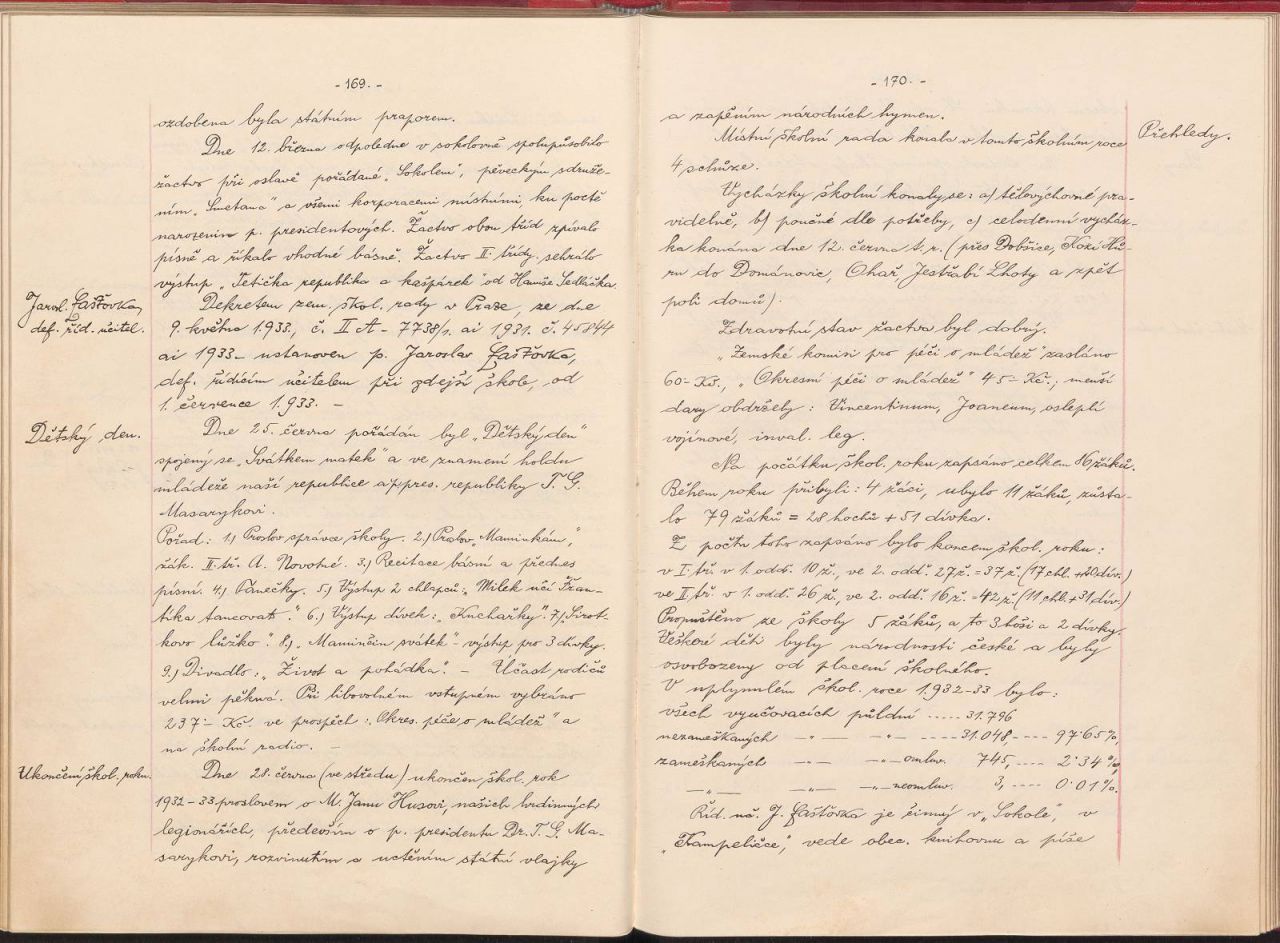 - 169. -
ozdobena byla státním praporem.
Dne 12. března odpoledne v sokolovně spolupůsobilo
žactvo při oslavě pořádané „Sokolem", pěveckým sdruže-
ním „Smetana" a všemi korporacemi místními, ku poctě
narozenin p. presidentových. Žactvo obou tříd zpívalo
písně a říkalo vhodné básně. Žactvo II. třídy sehrálo
výstup „Tetička republika a kašpárek" od Hanuše Sedláčka.
Jarosl. Laštovka,
def. říd. učitel.
Dekretem zem. škol. rady v Praze, ze dne
9. května 1.933., č. II A - 7738/1. ai 1931. č. 45844
ai 1933 - ustanoven p. Jaroslav Laštovka,
def. řídícím učitelem při zdejší škole, od
1. července 1.933. -
Dětský den.
Dne 25. června pořádán byl „Dětský den"
spojený se „Svátkem matek" a ve znamení holdu
mládeže naší republice a p. pres. republiky T. G.
Masarykovi.
Pořad: 1.) Proslov správce školy. 2.) Prolov „Maminkám",
žák. II. tř. A. Novotné. 3.) Recitace básní a přednes
písní. 4.) Tanečky. 5.) Výstup 2 chlapců: „Milek učí Fran-
tíka tancovati". 6.) Výstup dívek: „Kuchařky". 7.) Sirot-
kovo lůžko". 8.) „Maminčin svátek" - výstup pro 3 dívky.
9.) Divadlo: „Život a pohádka". - Účast rodičů
velmi pěkná. Při libovolném vstupném vybráno
237- Kč ve prospěch: „Okres. péče o mládež" a
na školní radio. -
Ukončení škol. roku.
Dne 28. června (ve středu) ukončen škol. rok
1932-33 proslovem o M. Janu Husovi, našich hrdinných
legionářích, především o p. presidentu Dr. T. G. Ma-
sarykovi, rozvinutím a uctěním státní vlajky
- 170. -
a zapěním národních hymen.
Přehledy.
Místní školní rada konala v tomto školním roce
4 schůze.
Vycházky školní konaly se: a) tělovýchovné pra-
videlně, b) poučné dle potřeby, c) celodenní vycház-
ka konána dne 12. června t. r. (přes Dobšice, Kozí Hů-
ru do Domanovic, Ohař, Jestřabí Lhoty a zpět
poli domů).
Zdravotní stav žactva byl dobrý.
„Zemské komisi pro péči o mládež" zasláno
60- Kč., „Okresní péči o mládež" 45- Kč.; menší
dary obdržely: Vincentinum, Joaneum, osleplí
vojínové, inval. leg.
Na počátku škol. roku zapsáno celkem 86 žáků.
Během roku přibyli: 4 žáci, ubylo 11 žáků, zůsta-
lo 79 žáků = 28 hochů + 51 dívka.
Z počtu toho zapsáno bylo koncem škol. roku:
v I. tř. v 1. odd. 10 ž., ve 2. odd. 27 ž. = 37 ž. (17 chl. + 20 dív.)
ve II. tř. v 1. odd. 26 ž., ve 2. odd. 16 ž. = 42 ž. (11 chl. + 31 dív.)
Propuštěno ze školy 5 žáků, a to 3 hoši a 2 dívky.
Veškeré děti byly národnosti české a byly
osvobozeny od placení školného.
V uplynulém škol. roce 1.932-33 bylo:
všech vyučovacích půldní ----- 31.796
nezameškaných -„- -„- ----- 31.048, ---- 97·65%,
zameškaných -„- -„- omluv. 745, ---- 2·34%,
-„- -„- -„- neomluv. 3, ---- 0·01%.
Říd. uč. J. Laštovka je činný v „Sokole", v
„Kampeličce", vede obec. knihovnu a píše